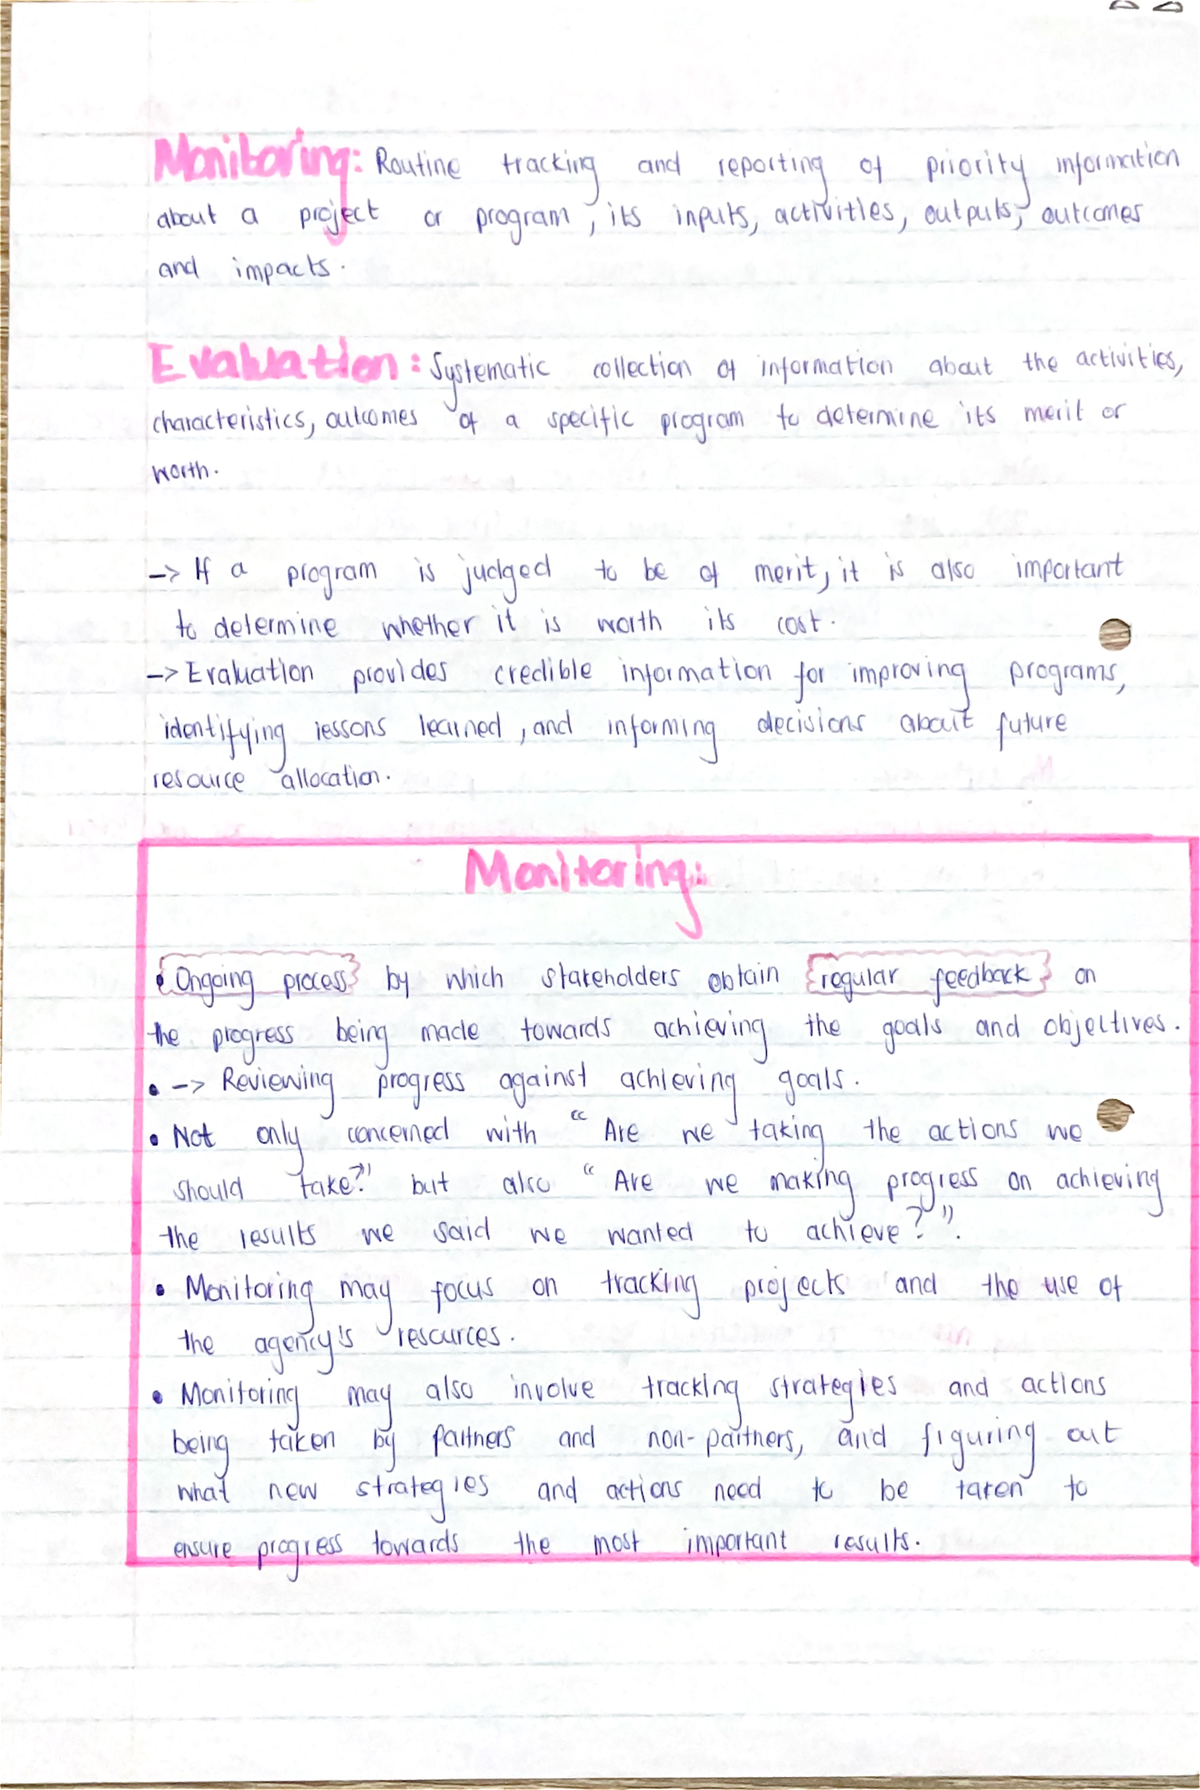 Monitoring: Routine tracking and reporting of priority information
about a project or program, its inputs, activities, outputs, outcomes
and impacts.
Evaluation: Systematic collection of information about the activities,
characteristics, outcomes of a specific program to determine its merit or
worth.
-> If a program is judged to be of merit, it is also important
to determine whether it is worth its cost.
-> Evaluation provides credible information for improving programs,
identifying lessons learned, and informing decisions about future
resource allocation.
Monitoring:
• Ongoing process by which stakeholders obtain regular feedback on
the progress being made towards achieving the goals and objectives.
• -> Reviewing progress against achieving goals.
• Not only concerned with "Are we taking the actions we
should take?" but also "Are we making progress on achieving
the results we said we wanted to achieve?".
• Monitoring may focus on tracking projects and the use of
the agency's resources.
• Monitoring may also involve tracking strategies and actions
being taken by partners and non-partners, and figuring out
what new strategies and actions need to be taken to
ensure progress towards the most important results.